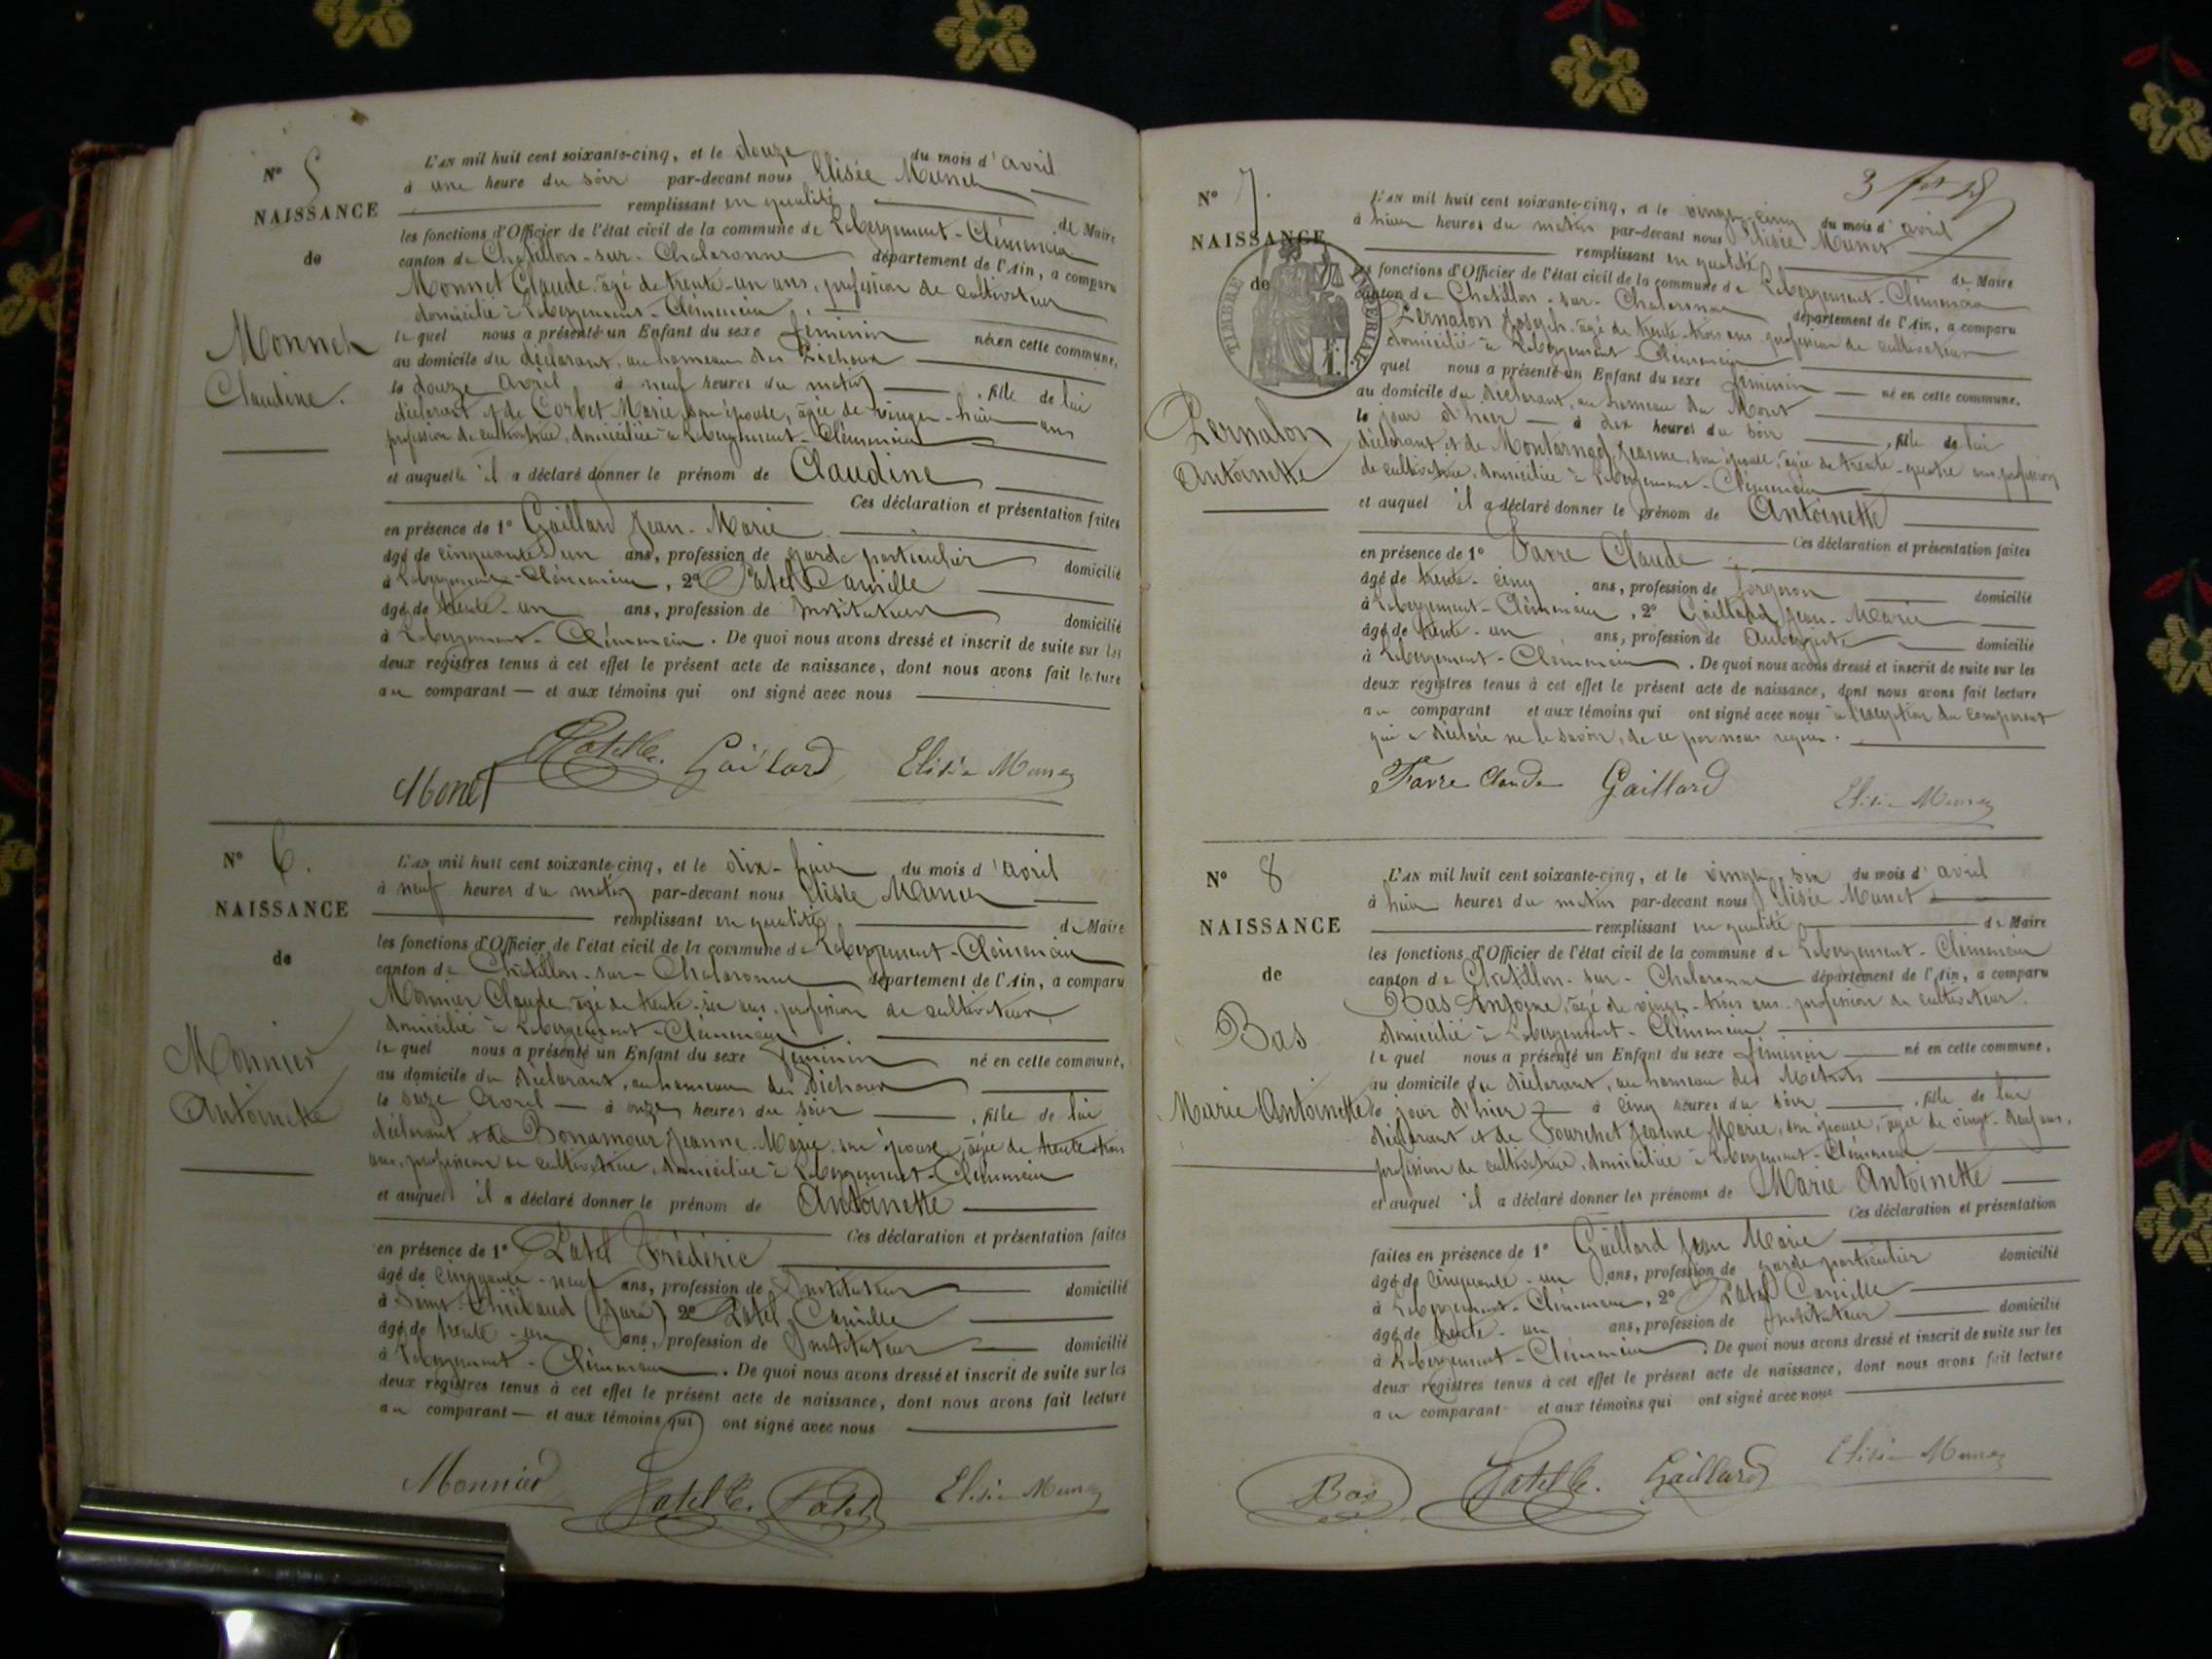 N° 5
NAISSANCE
de
Monnet
Claudine.
L'AN mil huit cent soixante-cinq, et le douze du mois d'avril
à une heure du soir par-devant nous Elisée Munet
remplissant en qualité de Maire
les fonctions d'Officier de l'état civil de la commune de L'abergement-Clémenciat
canton de Châtillon-sur-Chalaronne département de l'Ain, a comparu
Monnet Claude, âgé de trente-un ans, profession de cultivateur
domicilié à L'abergement-Clémenciat
le quel nous a présenté un Enfant du sexe féminin né en cette commune,
au domicile du déclarant, au hameau des Bichoux
le douze avril à neuf heures du matin, fille de lui
déclarant et de Corbet Marie, son épouse, âgée de vingt-huit ans
profession de cultivatrice, domiciliée à L'abergement-Clémenciat
et auquel il a déclaré donner le prénom de Claudine
Ces déclaration et présentation faites
en présence de 1° Gaillard Jean-Marie
âgé de cinquante-un ans, profession de garde particulier domicilié
à L'abergement-Clémenciat, 2° Patel Camille
âgé de trente-un ans, profession de Instituteur domicilié
à L'abergement-Clémenciat. De quoi nous avons dressé et inscrit de suite sur les
deux registres tenus à cet effet le présent acte de naissance, dont nous avons fait lecture
au comparant — et aux témoins qui ont signé avec nous
Monet Patel C. Gaillard Elisée Munet
N° 6.
NAISSANCE
de
Monnier
Antoinette
L'AN mil huit cent soixante-cinq, et le dix-huit du mois d'avril
à neuf heures du matin par-devant nous Elisée Munet
remplissant en qualité de Maire
les fonctions d'Officier de l'état civil de la commune de L'abergement-Clémenciat
canton de Châtillon-sur-Chalaronne département de l'Ain, a comparu
Monnier Claude, âgé de trente-six ans, profession de cultivateur,
domicilié à L'abergement-Clémenciat
le quel nous a présenté un Enfant du sexe féminin né en cette commune,
au domicile du déclarant, au hameau des Bichoux
le avril — à onze heures du soir, fille de lui
déclarant et de Bonamour Jeanne-Marie, son épouse, âgée de trente-trois
ans, profession de cultivatrice, domiciliée à L'abergement-Clémenciat
et auquel il a déclaré donner le prénom de Antoinette
Ces déclaration et présentation faites
en présence de 1° Patel Frédéric
âgé de cinquante-neuf ans, profession de Instituteur domicilié
à Saint-Thiébaud (Jura) 2° Patel Camille
âgé de trente-un ans, profession de Instituteur domicilié
à L'abergement-Clémenciat. De quoi nous avons dressé et inscrit de suite sur les
deux registres tenus à cet effet le présent acte de naissance, dont nous avons fait lecture
au comparant — et aux témoins qui ont signé avec nous
Monnier Patel C. Patel Elisée Munet
N° 7.
NAISSANCE
de
TIMBRE IMPÉRIAL
Pernalon
Antoinette
L'AN mil huit cent soixante-cinq, et le vingt-cinq du mois d'avril
à huit heures du matin par-devant nous Elisée Munet
remplissant en qualité de Maire
les fonctions d'Officier de l'état civil de la commune de L'abergement-Clémenciat
canton de Châtillon-sur-Chalaronne département de l'Ain, a comparu
Pernalon Joseph, âgé de trente-trois ans, profession de cultivateur
domicilié à L'abergement-Clémenciat
quel nous a présenté un Enfant du sexe féminin né en cette commune,
au domicile du déclarant, au hameau du Mont
le jour d'hier — à dix heures du soir, fille de lui
déclarant et de Jeanne, son épouse, âgée de trente-quatre ans, profession
de cultivatrice, domiciliée à L'abergement-Clémenciat
et auquel il a déclaré donner le prénom de Antoinette
Ces déclaration et présentation faites
en présence de 1° Favre Claude
âgé de trente-cinq ans, profession de forgeron domicilié
à L'abergement-Clémenciat, 2° Gaillard Jean-Marie
âgé de trente-un ans, profession de Aubergiste domicilié
à L'abergement-Clémenciat. De quoi nous avons dressé et inscrit de suite sur les
deux registres tenus à cet effet le présent acte de naissance, dont nous avons fait lecture
au comparant et aux témoins qui ont signé avec nous à l'exception du comparant
qui a déclaré ne le savoir, de ce par nous requis.
Favre Claude Gaillard Elisée Munet
N° 8
NAISSANCE
de
Bas
Marie Antoinette
L'AN mil huit cent soixante-cinq, et le vingt-six du mois d'avril
à huit heures du matin par-devant nous Elisée Munet
remplissant en qualité de Maire
les fonctions d'Officier de l'état civil de la commune de L'abergement-Clémenciat
canton de Châtillon-sur-Chalaronne département de l'Ain, a comparu
Bas Antoine, âgé de vingt-trois ans, profession de cultivateur,
domicilié à L'abergement-Clémenciat
le quel nous a présenté un Enfant du sexe féminin né en cette commune,
au domicile du déclarant, au hameau des
le jour d'hier — à cinq heures du soir, fille de lui
déclarant et de Fourchet Jeanne Marie, son épouse, âgée de vingt-neuf ans,
profession de cultivatrice, domiciliée à L'abergement-Clémenciat
et auquel il a déclaré donner les prénoms de Marie Antoinette
Ces déclaration et présentation
faites en présence de 1° Gaillard Jean Marie
âgé de cinquante-un ans, profession de garde particulier domicilié
à L'abergement-Clémenciat, 2° Patel Camille
âgé de trente-un ans, profession de Instituteur domicilié
à L'abergement-Clémenciat. De quoi nous avons dressé et inscrit de suite sur les
deux registres tenus à cet effet le présent acte de naissance, dont nous avons fait lecture
au comparant et aux témoins qui ont signé avec nous
Bas Patel C. Gaillard Elisée Munet